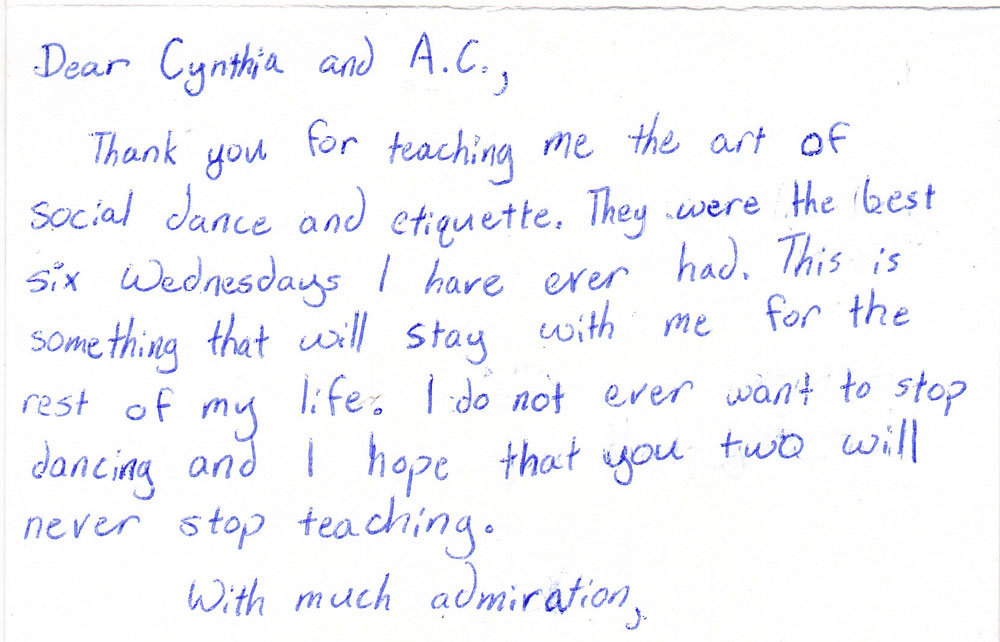 Dear Cynthia and A.C.,
Thank you for teaching me the art of
social dance and etiquette. They were the best
six Wednesdays I have ever had. This is
something that will stay with me for the
rest of my life. I do not ever want to stop
dancing and I hope that you two will
never stop teaching.
With much admiration,